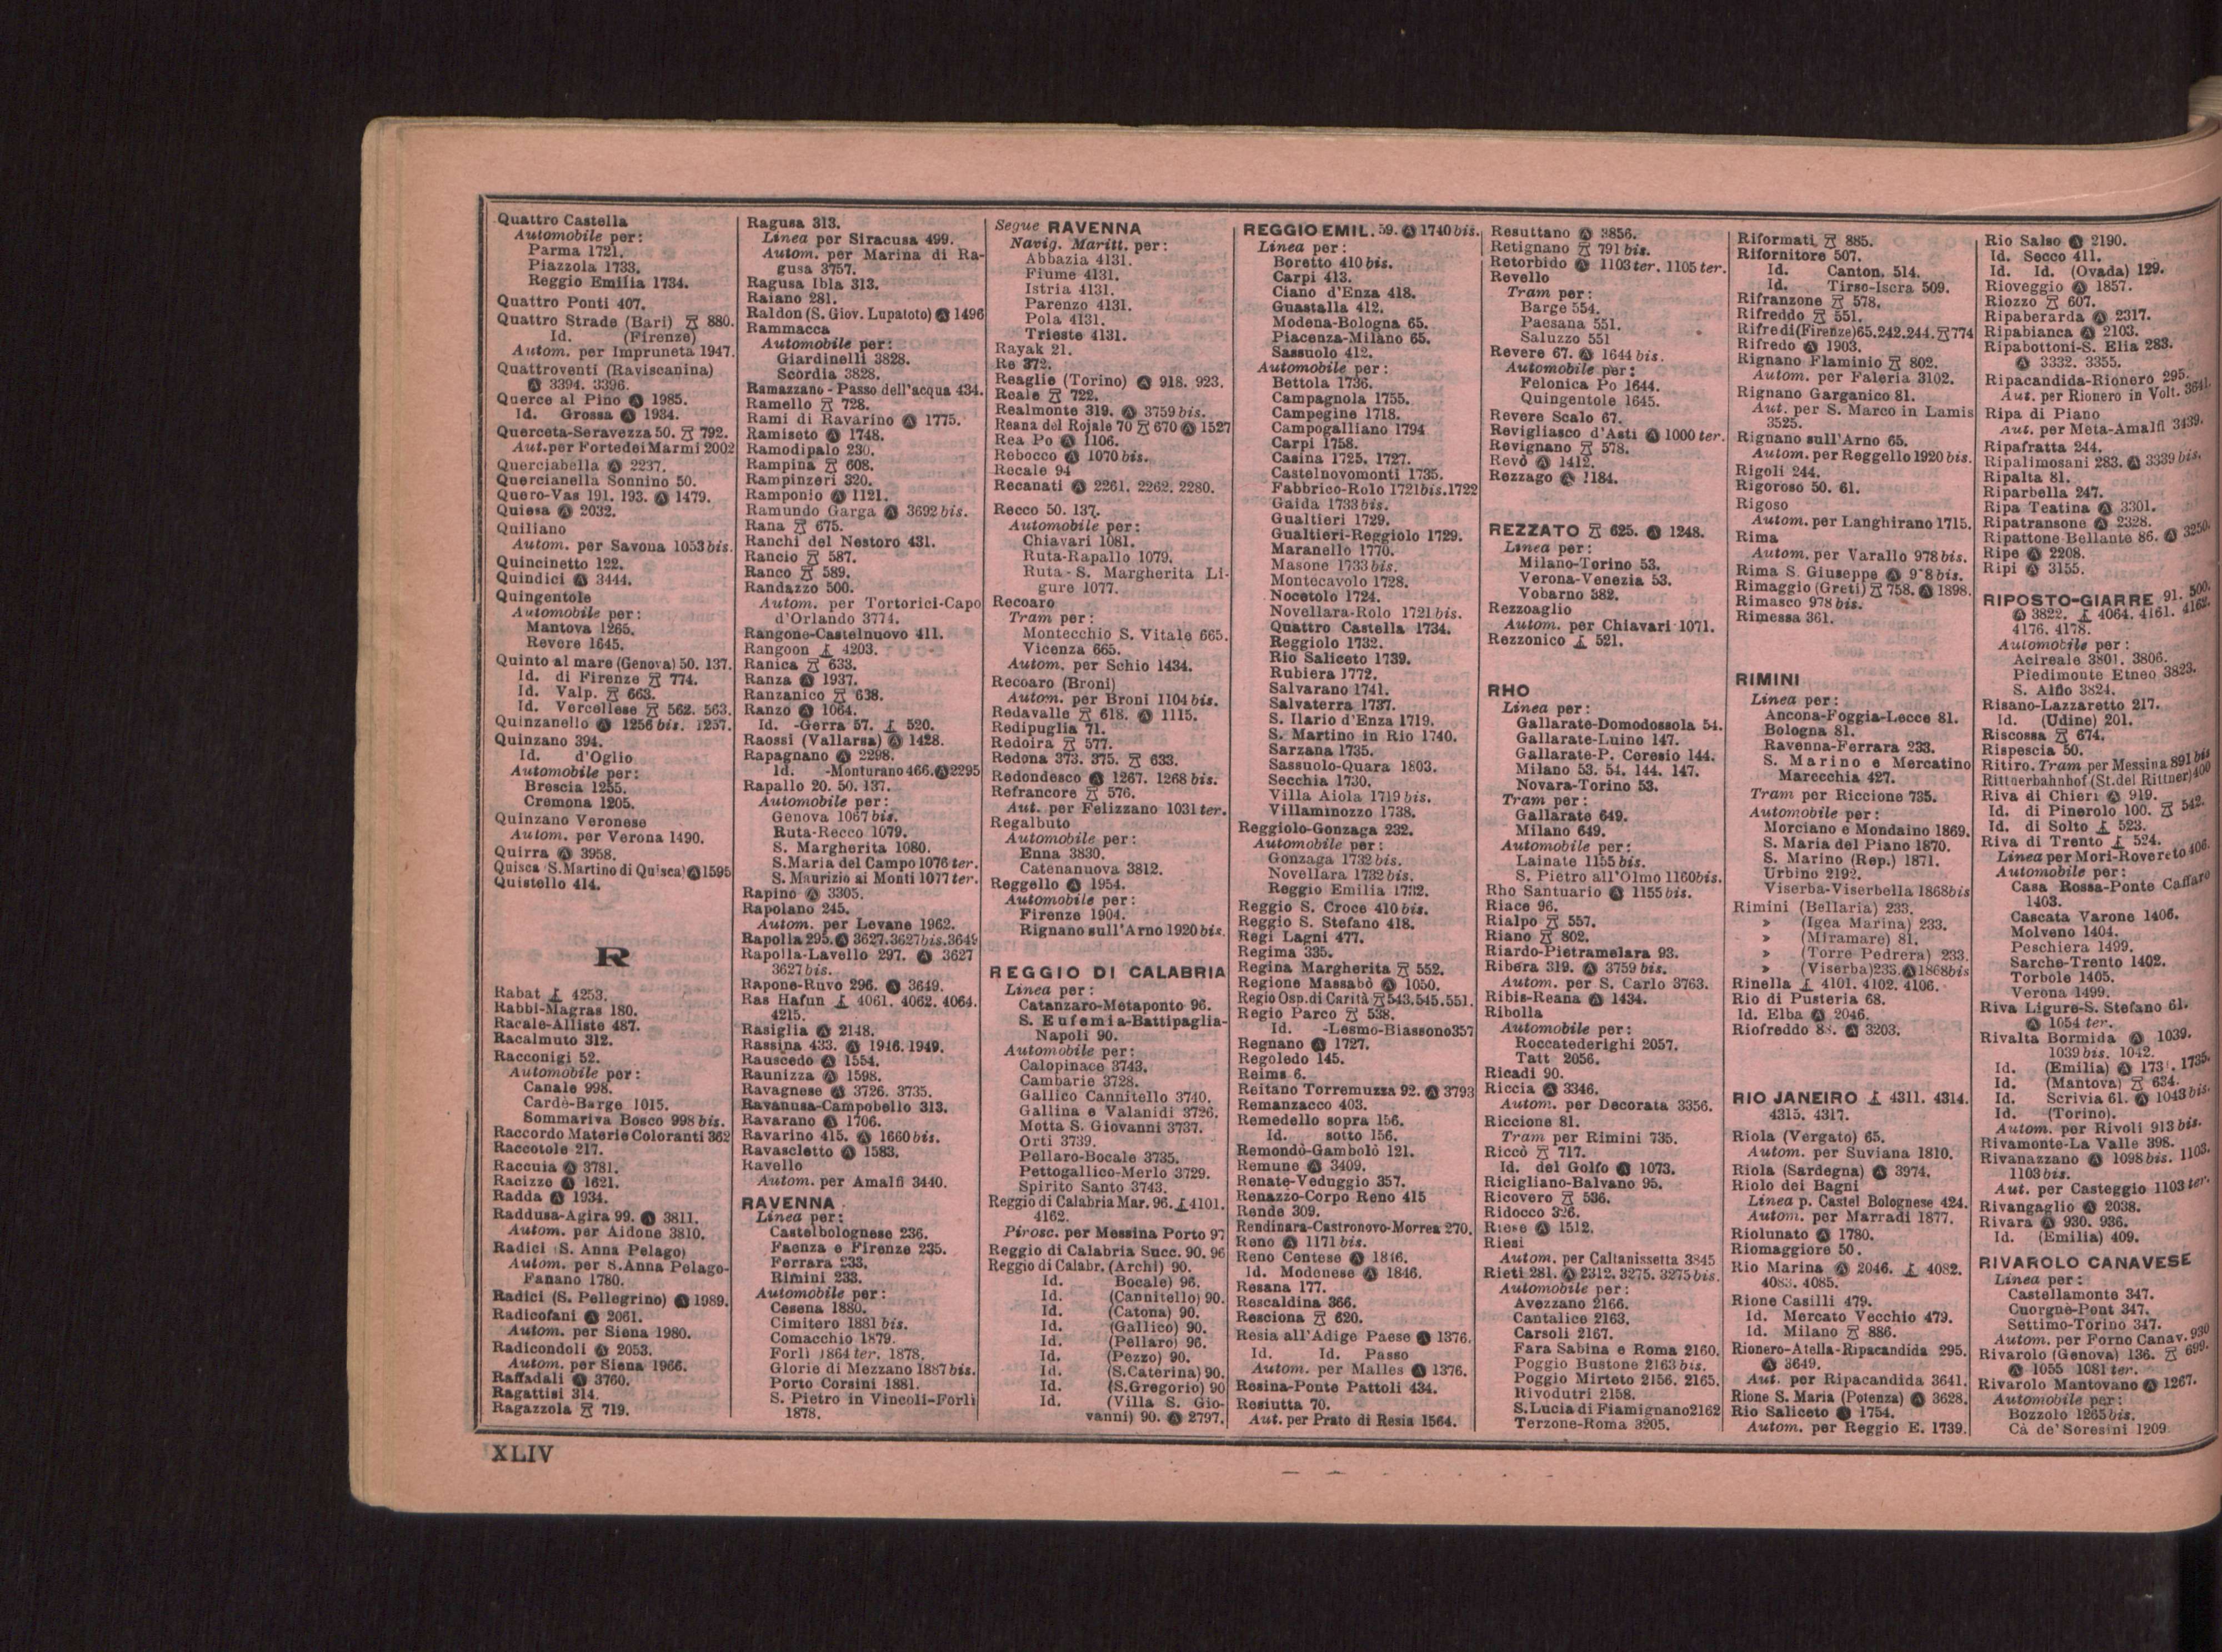 Quattro Castella
Automobile per:
Parma 1721.
Piazzola 1733.
Reggio Emilia 1734.
Quattro Ponti 407.
Quattro Strade (Bari) 880.
Id. (Firenze)
Autom. per Impruneta 1947.
Quattroventi (Raviscanina)
Ⓐ 3394. 3396.
Querce al Pino Ⓐ 1985.
Id. Grossa Ⓐ 1934.
Querceta-Seravezza 50. 792.
Aut. per Forte dei Marmi 2002
Querciabella Ⓐ 2237.
Quercianella Sonnino 50.
Quero-Vas 191. 193. Ⓐ 1479.
Quiesa Ⓐ 2032.
Quiliano
Autom. per Savona 1053 bis.
Quincinetto 122.
Quindici Ⓐ 3444.
Quingentole
Automobile per:
Mantova 1265.
Revere 1645.
Quinto al mare (Genova) 50. 137.
Id. di Firenze 774.
Id. Valp. 663.
Id. Vercellese 562. 563.
Quinzanello Ⓐ 1256 bis. 1257.
Quinzano 394.
Id. d'Oglio
Automobile per:
Brescia 1255.
Cremona 1205.
Quinzano Veronese
Autom. per Verona 1490.
Quirra Ⓐ 3958.
Quisca (S.Martino di Quisca) Ⓐ 1595
Quistello 414.
R
Rabat 4253.
Rabbi-Magras 180.
Racale-Alliste 487.
Racalmuto 312.
Racconigi 52.
Automobile per:
Canale 998.
Cardè-Barge 1015.
Sommariva Bosco 998 bis.
Raccordo Materie Coloranti 362
Raccotole 217.
Raccuia Ⓐ 3781.
Racizze Ⓐ 1621.
Radda Ⓐ 1934.
Raddusa-Agira 99. Ⓐ 3811.
Autom. per Aidone 3810.
Radici (S. Anna Pelago)
Autom. per S.Anna Pelago-
Fanano 1780.
Radici (S. Pellegrino) Ⓐ 1989.
Radicofani Ⓐ 2061.
Autom. per Siena 1980.
Radicondoli Ⓐ 2053.
Autom. per Siena 1966.
Raffadali Ⓐ 3760.
Ragattisi 314.
Ragazzola 719.
Ragusa 313.
Linea per Siracusa 499.
Autom. per Marina di Ra-
gusa 3757.
Ragusa Ibla 313.
Raiano 281.
Raldon (S. Giov. Lupatoto) Ⓐ 1496
Rammacca
Automobile per:
Giardinelli 3828.
Scordia 3828.
Ramazzano - Passo dell'acqua 434.
Ramello 728.
Rami di Ravarino Ⓐ 1775.
Ramiseto Ⓐ 1748.
Ramodipalo 230.
Rampina 608.
Rampinzeri 320.
Ramponio Ⓐ 1121.
Ramundo Garga Ⓐ 3692 bis.
Rana 675.
Ranchi del Nestoro 431.
Rancio 587.
Ranco 589.
Randazzo 500.
Autom. per Tortorici-Capo
d'Orlando 3774.
Rangone-Castelnuovo 411.
Rangoon 4203.
Ranica 633.
Ranza Ⓐ 1937.
Ranzanico 638.
Ranzo Ⓐ 1064.
Id. -Gerra 57. 520.
Raossi (Vallarsa) Ⓐ 1428.
Rapagnano Ⓐ 2298.
Id. -Monturano 466. Ⓐ 2295
Rapallo 20. 50. 137.
Automobile per:
Genova 1067 bis.
Ruta-Recco 1079.
S. Margherita 1080.
S.Maria del Campo 1076 ter.
S. Maurizio ai Monti 1077 ter.
Rapino Ⓐ 3305.
Rapolano 245.
Autom. per Levane 1962.
Rapolla 295. Ⓐ 3627. 3627 bis. 3649
Rapolla-Lavello 297. Ⓐ 3627
3627 bis.
Rapone-Ruvo 296. Ⓐ 3649.
Ras Hafun 4061. 4062. 4064.
4215.
Rasiglia Ⓐ 2148.
Rassina 433. Ⓐ 1946. 1949.
Rauscedo Ⓐ 1554.
Raunizza Ⓐ 1598.
Ravagnese Ⓐ 3726. 3735.
Ravanusa-Campobello 313.
Ravarano Ⓐ 1706.
Ravarino 415. Ⓐ 1660 bis.
Ravascletto Ⓐ 1583.
Ravello
Autom. per Amalfi 3440.
RAVENNA
Linea per:
Castelbolognese 236.
Faenza e Firenze 235.
Ferrara 233.
Rimini 233.
Automobile per:
Cesena 1880.
Cimitero 1881 bis.
Comacchio 1879.
Forlì 1864 ter. 1878.
Glorie di Mezzano 1887 bis.
Porto Corsini 1881.
S. Pietro in Vincoli-Forlì
1878.
Segue RAVENNA
Navig. Maritt. per:
Abbazia 4131.
Fiume 4131.
Istria 4131.
Parenzo 4131.
Pola 4131.
Trieste 4131.
Rayak 21.
Re 372.
Reaglie (Torino) Ⓐ 918. 923.
Reale 722.
Realmonte 319. Ⓐ 3759 bis.
Reana del Rojale 70 670 Ⓐ 1527
Rea Po Ⓐ 1106.
Rebocco Ⓐ 1070 bis.
Recale 94
Recanati Ⓐ 2261. 2262. 2280.
Recco 50. 137.
Automobile per:
Chiavari 1081.
Ruta-Rapallo 1079.
Ruta - S. Margherita Li-
gure 1077.
Recoaro
Tram per:
Montecchio S. Vitale 665.
Vicenza 665.
Autom. per Schio 1434.
Recoaro (Broni)
Autom. per Broni 1104 bis.
Redavalle 618. Ⓐ 1115.
Redipuglia 71.
Redoira 577.
Redona 373. 375. 633.
Redondesco Ⓐ 1267. 1268 bis.
Refrancore 576.
Aut. per Felizzano 1031 ter.
Regalbuto
Automobile per:
Enna 3830.
Catenanuova 3812.
Reggello Ⓐ 1954.
Automobile per:
Firenze 1904.
Rignano sull'Arno 1920 bis.
REGGIO DI CALABRIA
Linea per:
Catanzaro-Metaponto 96.
S. Eufemia-Battipaglia-
Napoli 90.
Automobile per:
Calopinace 3743.
Cambarie 3728.
Gallico Cannitello 3740.
Gallina e Valanidi 3726.
Motta S. Giovanni 3737.
Orti 3739.
Pellaro-Bocale 3735.
Pettogallico-Merlo 3729.
Spirito Santo 3743.
Reggio di Calabria Mar. 96. 4101.
4162.
Pirosc. per Messina Porto 97
Reggio di Calabria Succ. 90. 96
Reggio di Calabr. (Archi) 90.
Id. Bocale) 96.
Id. (Cannitello) 90.
Id. (Catona) 90.
Id. (Gallico) 90.
Id. (Pellaro) 96.
Id. (Pezzo) 90.
Id. (S.Caterina) 90.
Id. (S.Gregorio) 90
Id. (Villa S. Gio-
vanni) 90. Ⓐ 2797.
REGGIO EMIL. 59. Ⓐ 1740 bis.
Linea per:
Boretto 410 bis.
Carpi 413.
Ciano d'Enza 418.
Guastalla 412.
Modena-Bologna 65.
Piacenza-Milano 65.
Sassuolo 412.
Automobile per:
Bettola 1736.
Campagnola 1755.
Campegine 1718.
Campogalliano 1794
Carpi 1758.
Casina 1725. 1727.
Castelnovomonti 1735.
Fabbrico-Rolo 1721bis.1722
Gaida 1733 bis.
Gualtieri 1729.
Gualtieri-Reggiolo 1729.
Maranello 1770.
Masone 1733 bis.
Montecavolo 1728.
Nocetolo 1724.
Novellara-Rolo 1721 bis.
Quattro Castella 1734.
Reggiolo 1732.
Rio Saliceto 1739.
Rubiera 1772.
Salvarano 1741.
Salvaterra 1737.
S. Ilario d'Enza 1719.
S. Martino in Rio 1740.
Sarzana 1735.
Sassuolo-Quara 1803.
Secchia 1730.
Villa Aiola 1719 bis.
Villaminozzo 1738.
Reggiolo-Gonzaga 232.
Automobile per:
Gonzaga 1732 bis.
Novellara 1732 bis.
Reggio Emilia 1732.
Reggio S. Croce 410 bis.
Reggio S. Stefano 418.
Regi Lagni 477.
Regima 335.
Regina Margherita 552.
Regione Massabò Ⓐ 1050.
Regio Osp. di Carità 543.545.551.
Regio Parco 538.
Id. -Lesmo-Biassono 357
Regnano Ⓐ 1727.
Regoledo 145.
Reims 6.
Reitano Torremuzza 92. Ⓐ 3793
Remanzacco 403.
Remedello sopra 156.
Id. sotto 156.
Remondò-Gambolò 121.
Remune Ⓐ 3409.
Renate-Veduggio 357.
Renazzo-Corpo Reno 415
Rende 309.
Rendinara-Castronovo-Morrea 270.
Reno Ⓐ 1171 bis.
Reno Centese Ⓐ 1846.
Id. Modenese Ⓐ 1846.
Resana 177.
Rescaldina 366.
Resciona 620.
Resia all'Adige Paese Ⓐ 1376.
Id. Id. Passo
Autom. per Malles Ⓐ 1376.
Resina-Ponte Pattoli 434.
Resiutta 70.
Aut. per Prato di Resia 1564.
Resuttano Ⓐ 3856.
Retignano 791 bis.
Retorbido Ⓐ 1103 ter. 1105 ter.
Revello
Tram per:
Barge 554.
Paesana 551.
Saluzzo 551
Revere 67. Ⓐ 1644 bis.
Automobile per:
Felonica Po 1644.
Quingentole 1645.
Revere Scalo 67.
Revigliasco d'Asti Ⓐ 1000 ter.
Revignano 578.
Revò Ⓐ 1412.
Rezzago Ⓐ 1184.
REZZATO 625. Ⓐ 1248.
Linea per:
Milano-Torino 53.
Verona-Venezia 53.
Vobarno 382.
Rezzoaglio
Autom. per Chiavari 1071.
Rezzonico 521.
RHO
Linea per:
Gallarate-Domodossola 54.
Gallarate-Luino 147.
Gallarate-P. Ceresio 144.
Milano 53. 54. 144. 147.
Novara-Torino 53.
Tram per:
Gallarate 649.
Milano 649.
Automobile per:
Lainate 1155 bis.
S. Pietro all'Olmo 1160bis.
Rho Santuario Ⓐ 1155 bis.
Riace 96.
Rialpo 557.
Riano 802.
Riardo-Pietramelara 93.
Ribera 319. Ⓐ 3759 bis.
Autom. per S. Carlo 3763.
Ribis-Reana Ⓐ 1434.
Ribolla
Automobile per:
Roccatederighi 2057.
Tatt 2056.
Ricadi 90.
Riccia Ⓐ 3346.
Autom. per Decorata 3356.
Riccione 81.
Tram per Rimini 735.
Riccò 717.
Id. del Golfo Ⓐ 1073.
Ricigliano-Balvano 95.
Ricovero 536.
Ridocco 326.
Riese Ⓐ 1512.
Riesi
Autom. per Caltanissetta 3845
Rieti 281. Ⓐ 2312. 3275. 3275 bis.
Automobile per:
Avezzano 2166.
Cantalice 2163.
Carsoli 2167.
Fara Sabina e Roma 2160.
Poggio Bustone 2163 bis.
Poggio Mirteto 2156. 2165.
Rivodutri 2158.
S.Lucia di Fiamignano 2162
Terzone-Roma 3205.
Riformati 885.
Rifornitore 507.
Id. Canton. 514.
Id. Tirso-Isera 509.
Rifranzone 578.
Rifreddo 551.
Rifredi (Firenze) 65. 242. 244. 774
Rifredo Ⓐ 1903.
Rignano Flaminio 802.
Autom. per Faleria 3102.
Rignano Garganico 81.
Aut. per S. Marco in Lamis
3525.
Rignano sull'Arno 65.
Autom. per Reggello 1920 bis.
Rigoli 244.
Rigoroso 50. 61.
Rigoso
Autom. per Langhirano 1715.
Rima
Autom. per Varallo 978 bis.
Rima S. Giuseppe Ⓐ bis.
Rimaggio (Greti) 758. Ⓐ 1898.
Rimasco 978 bis.
Rimessa 361.
RIMINI
Linea per:
Ancona-Foggia-Lecce 81.
Bologna 81.
Ravenna-Ferrara 233.
S. Marino e Mercatino
Marecchia 427.
Tram per Riccione 735.
Automobile per:
Morciano e Mondaino 1869.
S. Maria del Piano 1870.
S. Marino (Rep.) 1871.
Urbino 2192.
Viserba-Viserbella 1868bis
Rimini (Bellaria) 233.
» (Igea Marina) 233.
» (Miramare) 81.
» (Torre Pedrera) 233.
» (Viserba) 233. Ⓐ 1868bis
Rinella 4101. 4102. 4106.
Rio di Pusteria 68.
Id. Elba Ⓐ 2046.
Riofreddo Ⓐ 3203.
RIO JANEIRO 4311. 4314.
4315. 4317.
Riola (Vergato) 65.
Autom. per Suviana 1810.
Riola (Sardegna) Ⓐ 3974.
Riolo dei Bagni
Linea p. Castel Bolognese 424.
Autom. per Marradi 1877.
Riolunato Ⓐ 1780.
Riomaggiore 50.
Rio Marina Ⓐ 2046. 4082.
4083. 4085.
Rione Casilli 479.
Id. Mercato Vecchio 479.
Id. Milano 886.
Rionero-Atella-Ripacandida 295.
Ⓐ 3649.
Aut. per Ripacandida 3641.
Rione S. Maria (Potenza) Ⓐ 3628.
Rio Saliceto Ⓐ 1754.
Autom. per Reggio E. 1739.
Rio Salso Ⓐ 2190.
Id. Secco 411.
Id. Id. (Ovada) 129.
Rioveggio Ⓐ 1857.
Riozzo 607.
Ripaberarda Ⓐ 2317.
Ripabianca Ⓐ 2103.
Ripabottoni-S. Elia 283.
Ⓐ 3332. 3355.
Ripacandida-Rionero 295.
Aut. per Rionero in Volt. 3641.
Ripa di Piano
Aut. per Meta-Amalfi 3439.
Ripafratta 244.
Ripalimosani 283. Ⓐ 3339 bis.
Ripalta 81.
Riparbella 247.
Ripa Teatina Ⓐ 3301.
Ripatransone Ⓐ 2328.
Ripattone Bellante 86. Ⓐ 3250.
Ripe Ⓐ 2208.
Ripi Ⓐ 3155.
RIPOSTO-GIARRE 91. 500.
Ⓐ 3822. 4064. 4161. 4162.
4176. 4178.
Automobile per:
Acireale 3801. 3806.
Piedimonte Etneo 3823.
S. Alfio 3824.
Risano-Lazzaretto 217.
Id. (Udine) 201.
Riscossa 674.
Rispescia 50.
Ritiro. Tram per Messina 891 bis
Rittnerbahnhof (St.del Rittner) 400
Riva di Chieri Ⓐ 919.
Id. di Pinerolo 100. 542.
Id. di Solto 523.
Riva di Trento 524.
Linea per Mori-Rovereto 406.
Automobile per:
Casa Rossa-Ponte Caffaro
1403.
Cascata Varone 1406.
Molveno 1404.
Peschiera 1499.
Sarche-Trento 1402.
Torbole 1405.
Verona 1499.
Riva Ligure-S. Stefano 61.
Ⓐ 1054 ter.
Rivalta Bormida Ⓐ 1039.
1039 bis. 1042.
Id. (Emilia) Ⓐ 1735.
Id. (Mantova) 634.
Id. Scrivia 61. Ⓐ 1043 bis.
Id. (Torino).
Autom. per Rivoli 913 bis.
Rivamonte-La Valle 398.
Rivanazzano Ⓐ 1098 bis. 1103.
1103 bis.
Aut. per Casteggio 1103 ter.
Rivangaglio Ⓐ 2038.
Rivara Ⓐ 930. 936.
Id. (Emilia) 409.
RIVAROLO CANAVESE
Linea per:
Castellamonte 347.
Cuorgnè-Pont 347.
Settimo-Torino 347.
Autom. per Forno Canav. 930
Rivarolo (Genova) 136. 699.
Ⓐ 1055 1081 ter.
Rivarolo Mantovano Ⓐ 1267.
Automobile per:
Bozzolo 1265 bis.
Cà de' Soresini 1209
XLIV